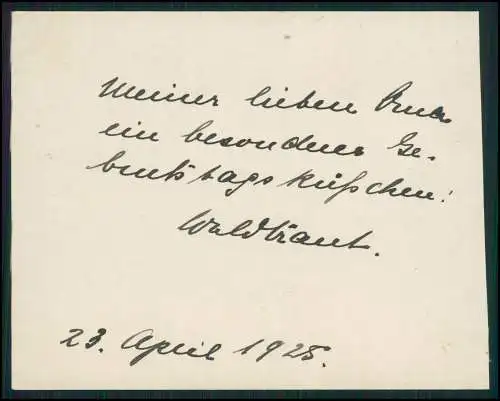 Meiner lieben Oma
ein besonderes Ge-
burtstagsküßchen!
Waldtraut.
23. April 1925.